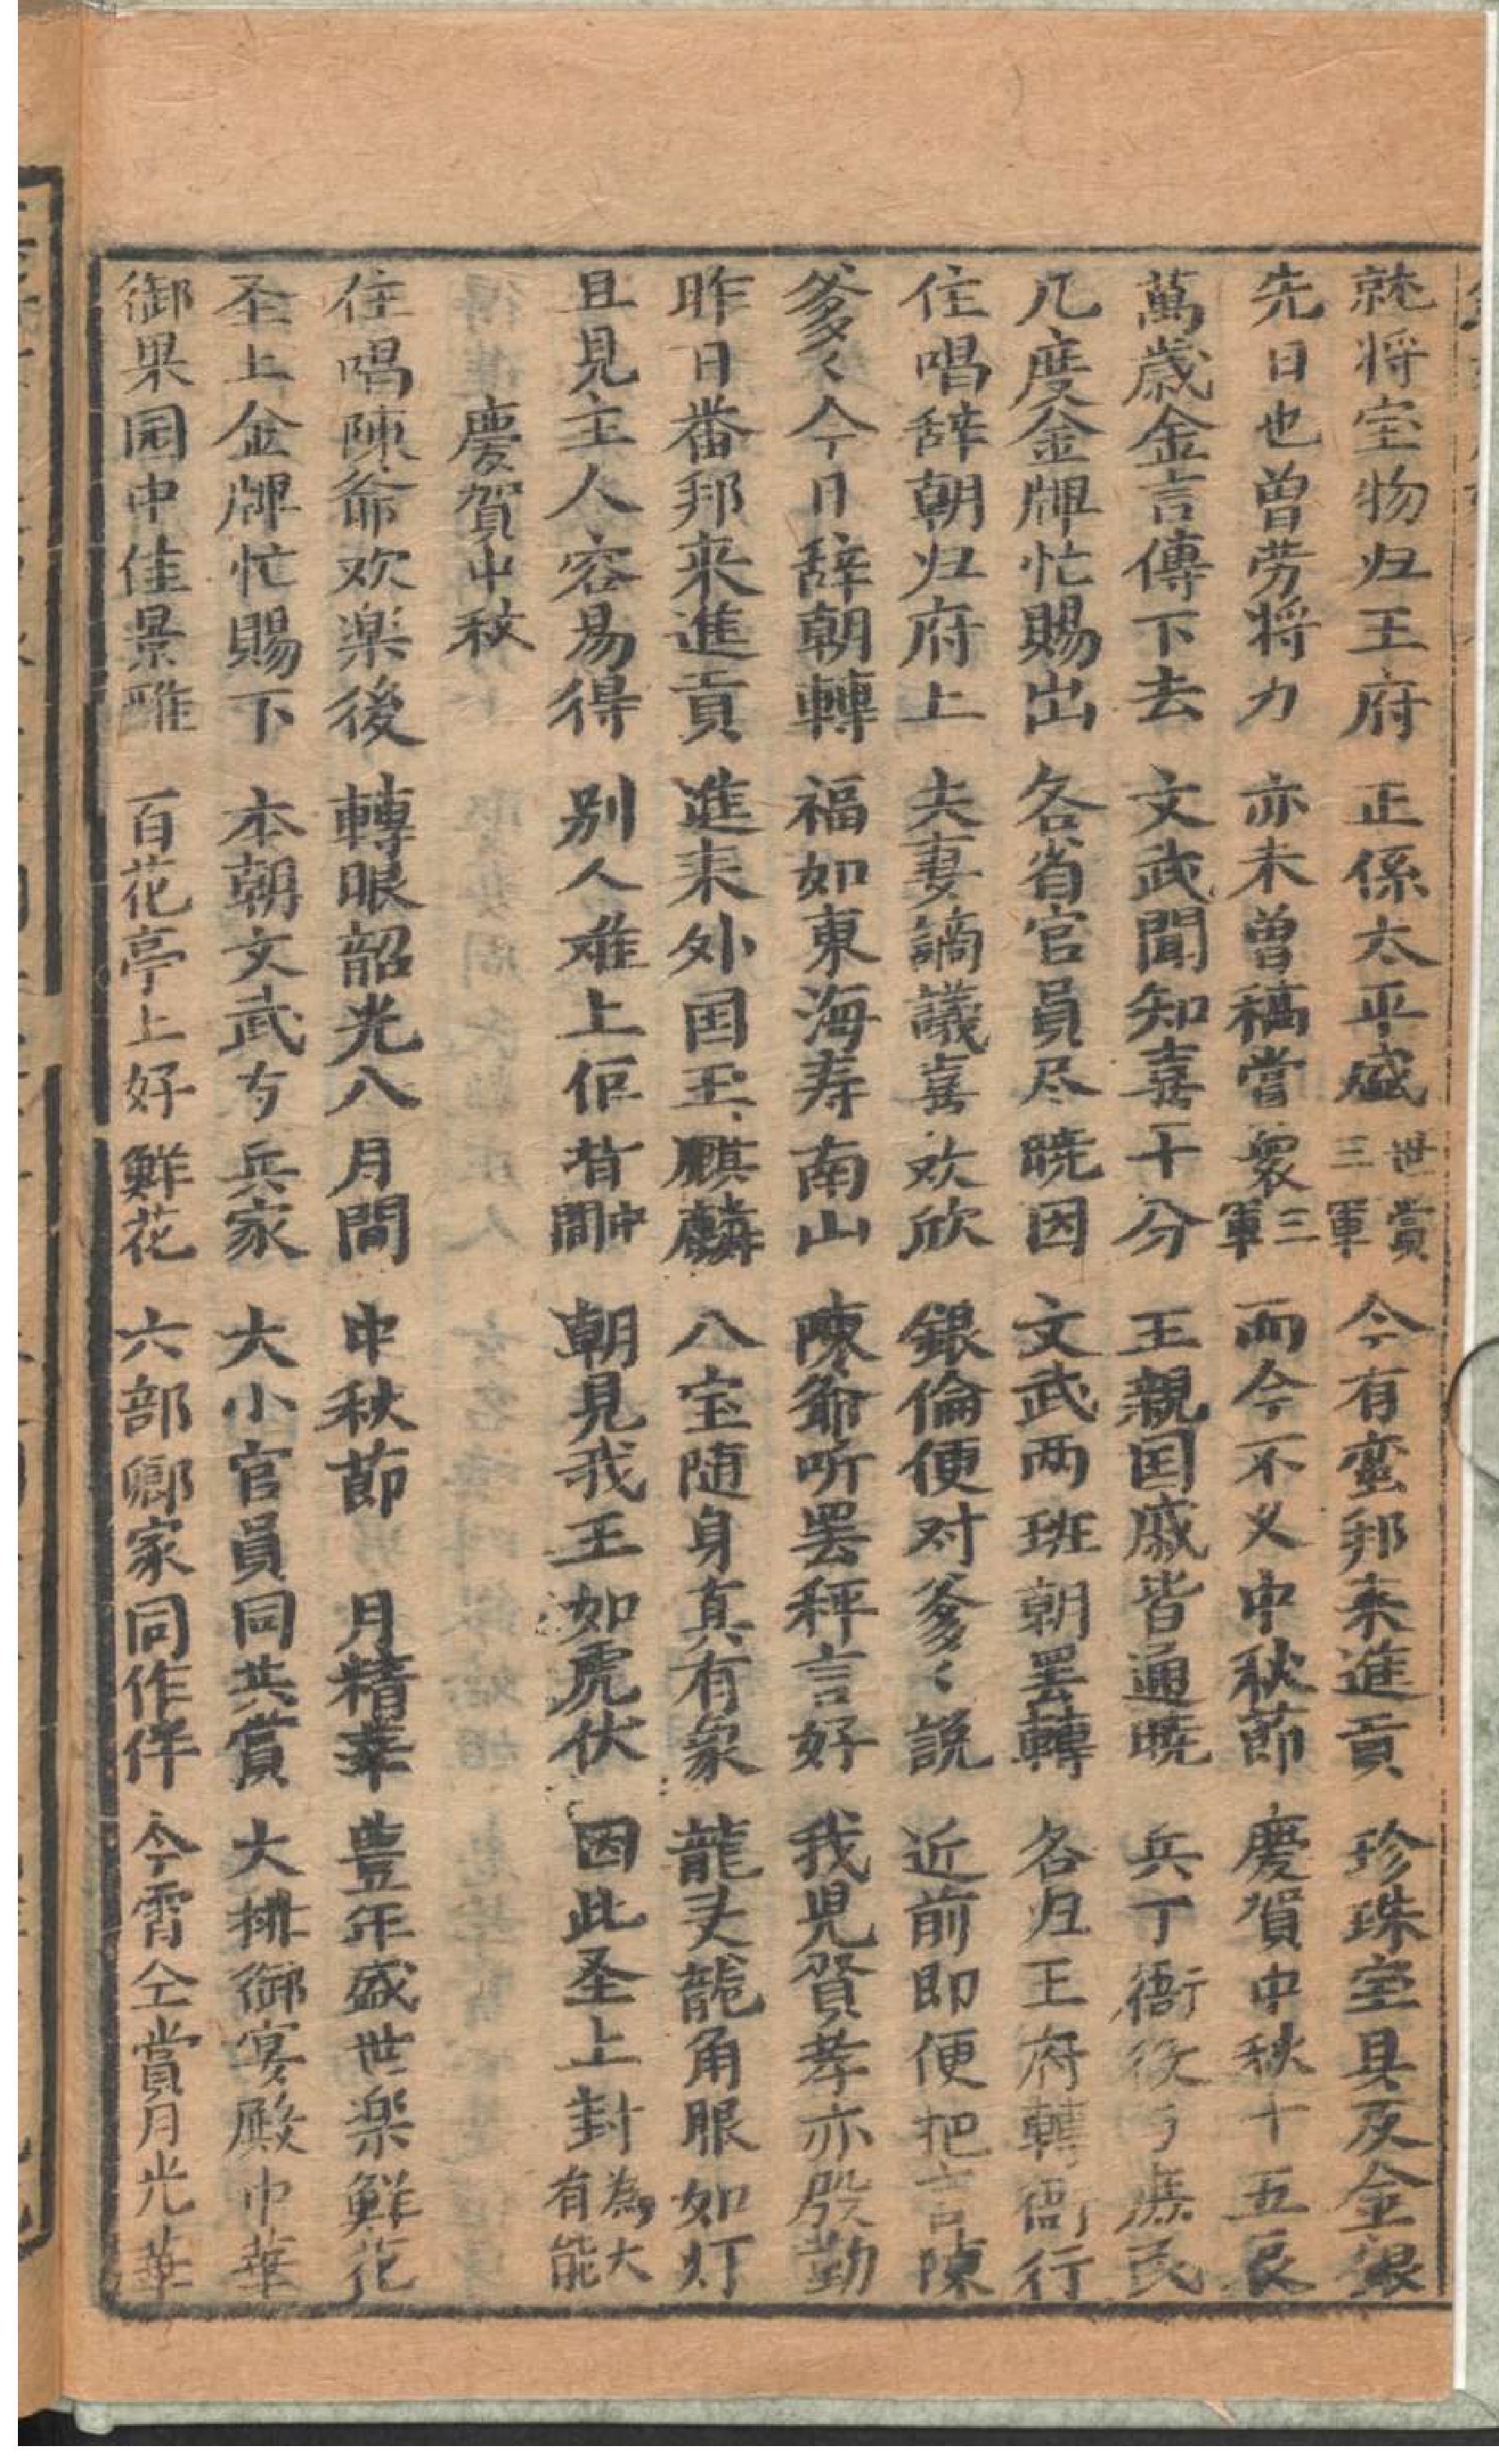 就将宝物归王府　正係太平盛世賞三軍　今有蛮邦来進貢　珍珠宝具及金銀
先日也曽劳将力　亦未曽稿嘗衆三軍　而今不乂中秋節　慶賀中秋十五良
萬歳金言傳下去　文武聞知喜十分　王親囯戚皆通暁　兵丁衙役亐庶民
几度金牌忙賜出　各省官員尽暁因　文武两班朝罢轉　各归王府轉衙行
住唱辞朝归府上　夫妻謫議喜欢欣　銀倫便对爹〻説　近前即便把言陳
爹〻今日辞朝轉　福如東海寿南山　陳爺听罢秤言好　我児賢孝亦殷勤
昨日番邦来進貢　進来外囯王麒麟　八宝随身真有象　龍头龍角眼如灯
且見主人容易得　别人难上佢背中間　朝見我王如虎伏　因此圣上封為大有能
慶賀中秋
住唱陳爺欢楽後　轉眼韶光八月間　中秋節　月精華　豊年盛世楽鮮花
圣上金牌忙賜下　本朝文武亐兵家　大小官員同共賞　大排御宴殿中華
御果园中佳景雅　百花亭上好鮮花　六部卿家同作伴　今霄仝賞月光華